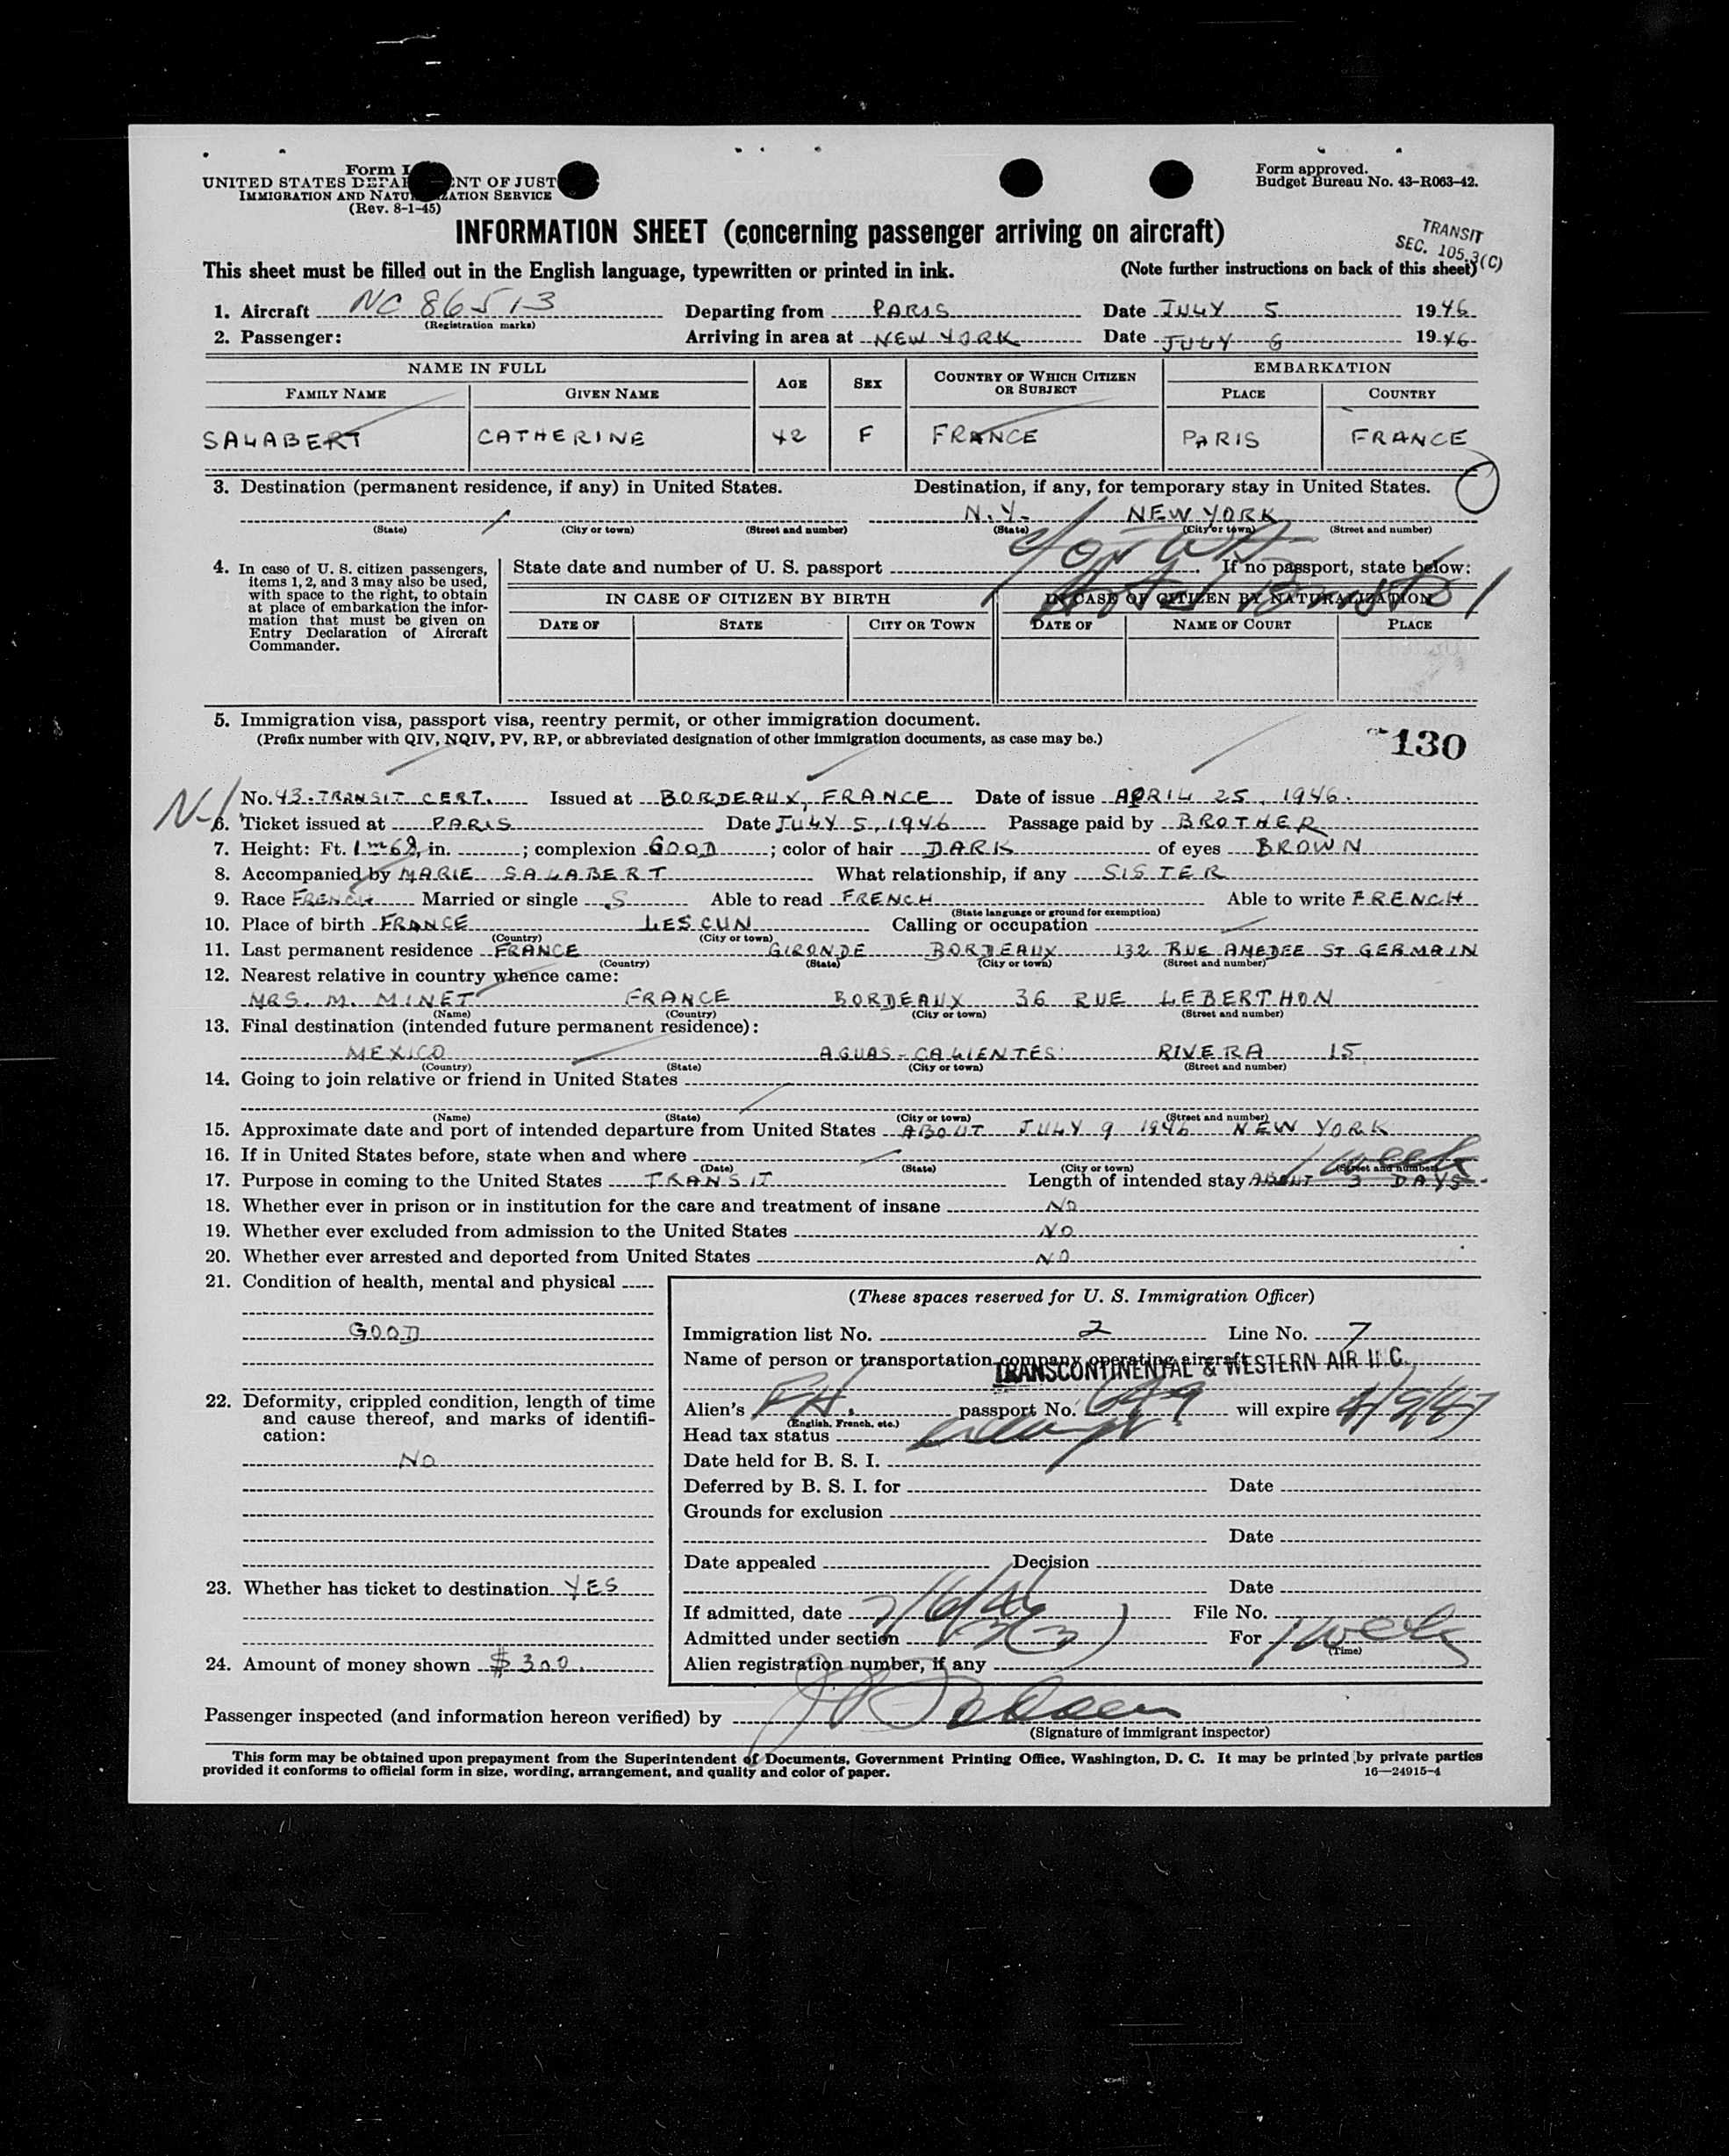 Form I
UNITED STATES DEPAR ENT OF JUST
IMMIGRATION AND NATU ZATION SERVICE
(Rev. 8-1-45)
Form approved.
Budget Bureau No. 43-R063-42.
INFORMATION SHEET (concerning passenger arriving on aircraft)
TRANSIT
SEC. 105.3(C)
This sheet must be filled out in the English language, typewritten or printed in ink. (Note further instructions on back of this sheet)
1. Aircraft NC 86513 Departing from PARIS Date JULY 5 1946
(Registration marks)
2. Passenger: Arriving in area at NEW YORK Date JULY 6 1946
NAME IN FULL AGE SEX COUNTRY OF WHICH CITIZEN OR SUBJECT EMBARKATION
FAMILY NAME GIVEN NAME PLACE COUNTRY
SALABERT CATHERINE 42 F FRANCE PARIS FRANCE
3. Destination (permanent residence, if any) in United States. Destination, if any, for temporary stay in United States.
N.Y. NEW YORK
(State) (City or town) (Street and number) (State) (City or town) (Street and number)
4. In case of U. S. citizen passengers, items 1, 2, and 3 may also be used, with space to the right, to obtain at place of embarkation the information that must be given on Entry Declaration of Aircraft Commander.
State date and number of U. S. passport If no passport, state below:
c/o TWA
Hotel Bristol
IN CASE OF CITIZEN BY BIRTH IN CASE OF CITIZEN BY NATURALIZATION
DATE OF STATE CITY OR TOWN DATE OF NAME OF COURT PLACE
5. Immigration visa, passport visa, reentry permit, or other immigration document.
(Prefix number with QIV, NQIV, PV, RP, or abbreviated designation of other immigration documents, as case may be.)
130
No. 43-TRANSIT CERT. Issued at BORDEAUX, FRANCE Date of issue APRIL 25, 1946.
6. Ticket issued at PARIS Date JULY 5, 1946 Passage paid by BROTHER
7. Height: Ft. 1m68, in. ; complexion GOOD ; color of hair DARK of eyes BROWN
8. Accompanied by MARIE SALABERT What relationship, if any SISTER
9. Race FRENCH Married or single S Able to read FRENCH Able to write FRENCH
(State language or ground for exemption)
10. Place of birth FRANCE LESCUN Calling or occupation
(Country) (City or town)
11. Last permanent residence FRANCE GIRONDE BORDEAUX 132 RUE AMEDEE ST GERMAIN
(Country) (State) (City or town) (Street and number)
12. Nearest relative in country whence came:
MRS. M. MINET FRANCE BORDEAUX 36 RUE LEBERTHON
(Name) (Country) (City or town) (Street and number)
13. Final destination (intended future permanent residence):
MEXICO AGUAS-CALIENTES RIVERA 15
(Country) (State) (City or town) (Street and number)
14. Going to join relative or friend in United States
(Name) (State) (City or town) (Street and number)
15. Approximate date and port of intended departure from United States ABOUT JULY 9 1946 NEW YORK
16. If in United States before, state when and where
(Date) (State) (City or town) (Street and number)
1 week
17. Purpose in coming to the United States TRANSIT Length of intended stay ABOUT 3 DAYS
18. Whether ever in prison or in institution for the care and treatment of insane NO
19. Whether ever excluded from admission to the United States NO
20. Whether ever arrested and deported from United States NO
21. Condition of health, mental and physical
GOOD
22. Deformity, crippled condition, length of time and cause thereof, and marks of identification:
NO
23. Whether has ticket to destination YES
24. Amount of money shown $300.
(These spaces reserved for U. S. Immigration Officer)
Immigration list No. 2 Line No. 7
Name of person or transportation company operating aircraft
TRANSCONTINENTAL & WESTERN AIR INC.
Alien's FH. passport No. 699 will expire 4/9/47
(English, French, etc.)
Head tax status exempt
Date held for B. S. I.
Deferred by B. S. I. for Date
Grounds for exclusion
Date
Date appealed Decision
Date
If admitted, date 7/6/46 File No.
Admitted under section 3(3) For 1 week
(Time)
Alien registration number, if any
Passenger inspected (and information hereon verified) by
(Signature of immigrant inspector)
This form may be obtained upon prepayment from the Superintendent of Documents, Government Printing Office, Washington, D. C. It may be printed by private parties
provided it conforms to official form in size, wording, arrangement, and quality and color of paper. 16—24915-4